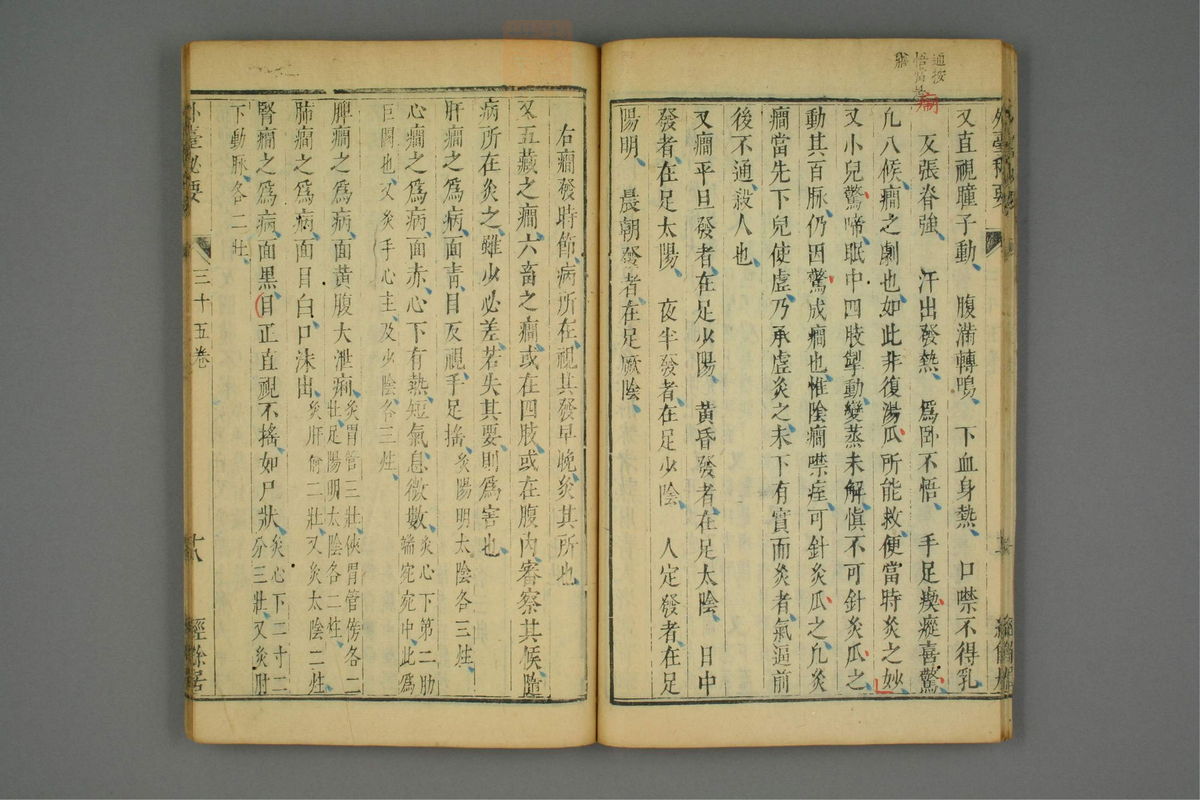 通按
悟當
外臺秘要
又直視瞳子動　腹滿轉鳴　下血身熱　口噤不得乳
反張脊強　汗出發熱　爲卧不悟　手足瘈瘲喜驚
凡八候癇之劇也如此非復湯瓜所能救便當時灸之妙
又小兒驚啼眠中四肢掣動變蒸未解愼不可針灸瓜之
動其百脉仍因驚成癇也惟陰癇噤痓可針灸瓜之凡灸
癇當先下兒使虛乃承虛灸之未下有實而灸者氣逼前
後不通殺人也
又癇平旦發者在足少陽　黃昏發者在足太陰　日中
發者在足太陽　夜半發者在足少陰　人定發者在足
陽明　晨朝發者在足厥陰
右癇發時節病所在視其發早晚灸其所也
又五藏之癇六畜之癇或在四肢或在腹內審察其候隨
病所在灸之雖少必差若失其要則爲害也
肝癇之爲病面靑目反視手足搖灸陽明太陰各三炷
心癇之爲病面赤心下有熱短氣息微數灸心下第二肋
端宛宛中此爲
巨闕也又灸手心主及少陰各三炷
脾癇之爲病面黃腹大泄痢灸胃管三壯俠胃管傍各二
壯足陽明太陰各二炷
肺癇之爲病面目白口沫出灸肝兪二壯又灸太陰二炷
腎癇之爲病面黑目正直視不搖如尸狀灸心下二寸二
分三壯又灸肘
下動脉各二壯
外臺秘要　三十五卷　十八　經餘居